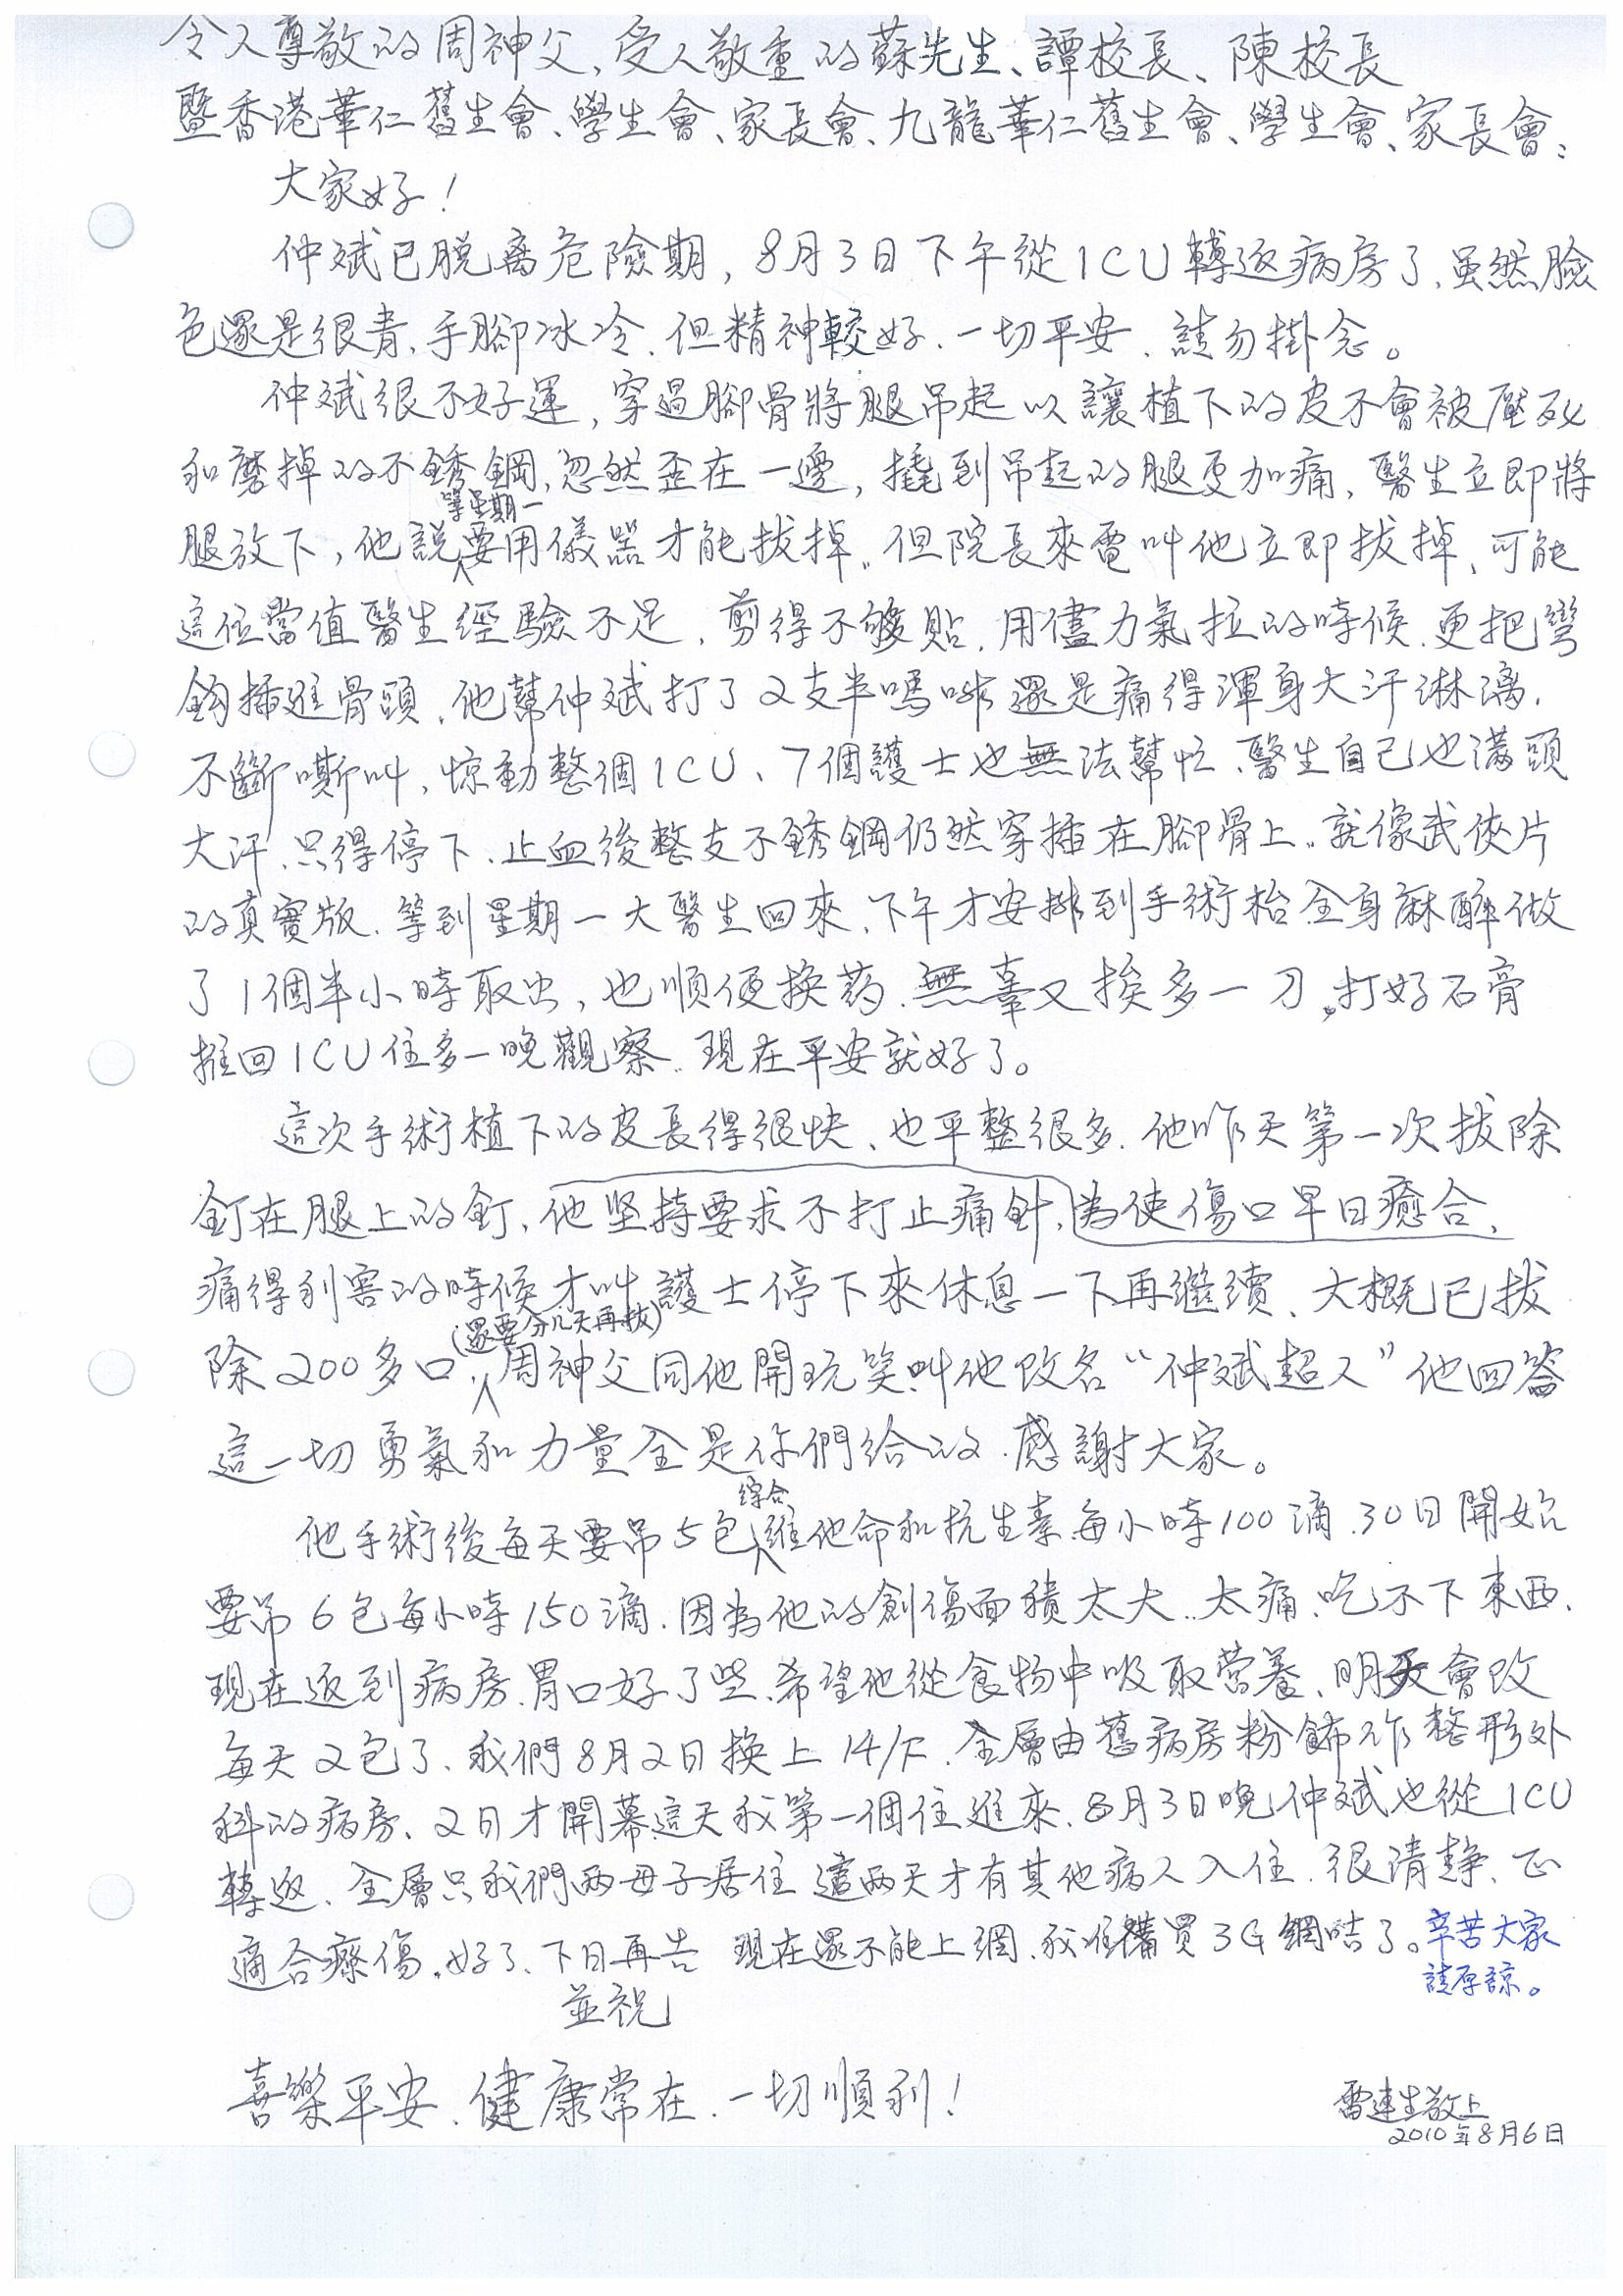 令人尊敬的周神父、受人敬重的蘇先生、譚校長、陳校長
暨香港華仁舊生會、學生會、家長會、九龍華仁舊生會、學生會、家長會：
大家好！
仲斌已脱离危險期，8月3日下午從ICU轉返病房了，虽然臉
色還是很青，手腳冰冷，但精神較好，一切平安，請勿掛念。
仲斌很不好運，穿過腳骨將腿吊起以讓植下的皮不會被壓死
和磨掉的不銹鋼，忽然歪在一邊，撬到吊起的腿更加痛，醫生立即將
等星期一
腿放下，他說要用儀器才能拔掉。但院長來電叫他立即拔掉，可能
這位當值醫生經驗不足，剪得不够貼，用儘力氣拉的時候，更把彎
鈎插進骨頭，他幫仲斌打了2支半嗎啡還是痛得渾身大汗淋漓，
不斷嘶叫，惊動整個ICU、7個護士也無法幫忙、醫生自己也满頭
大汗，只得停下、止血後整支不銹鋼仍然穿插在腳骨上。就像武俠片
的真實版，等到星期一大醫生回來，下午才安排到手術枱全身麻醉做
了1個半小時取出，也順便換葯，無辜又挨多一刀，打好石膏
推回ICU住多一晚觀察。現在平安就好了。
這次手術植下的皮長得很快、也平整很多，他昨天第一次拔除
釘在腿上的釘，他坚持要求不打止痛針，為使傷口早日癒合，
痛得利害的時候才叫護士停下來休息一下再繼續、大概已拔
(還要分几天再拔)
除200多口，周神父同他開玩笑叫他改名“仲斌超人”他回答
這一切勇氣和力量全是你們給的，感謝大家。
綜合
他手術後每天要吊5包維他命和抗生素每小時100滴，30日開始
要吊6包每小時150滴，因為他的創傷面積太大，太痛，吃不下東西，
現在返到病房，胃口好了些，希望他從食物中吸取营養，明天會改
每天2包了，我們8月2日換上14/F，全層由舊病房粉飾作整形外
科的病房、2日才開幕這天我第一個住進來，8月3日晚仲斌也從ICU
轉返，全層只我們两母子居住 這两天才有其他病人入住，很清静、正
適合療傷。好了、下日再告 現在還不能上網，我准備買3G網咭了。辛苦大家
請原諒。
並祝
喜樂平安，健康常在，一切順利！
雷連生敬上
2010年8月6日